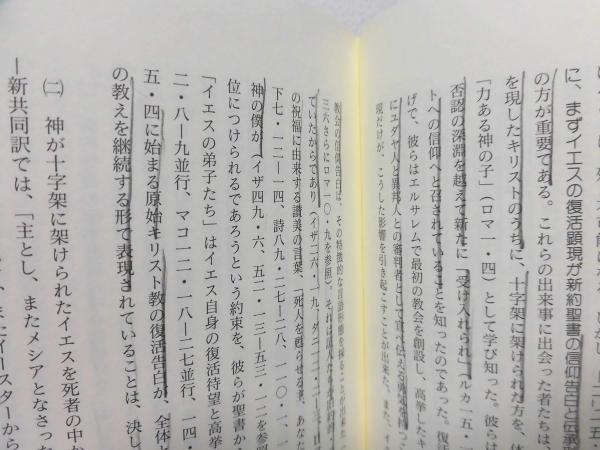 に、まずイエスの復活顕現が新約聖書の信仰告白と伝承
の方が重要である。これらの出来事に出会った者たちは、
を現したキリストのうちに、十字架に架けられた方を、体
「力ある神の子」(ロマ一・四)として学び知った。彼らは
否認の深淵を越えて新たに「受け入れられ」
トへの信仰へと召されていることを知ったのであった。復活
げて、彼らはエルサレムで最初の教会を創設し、高挙したキ
にユダヤ人と異邦人との審判者として宣べ伝える勇気を持つこ
現だけが、こうした影響を引き起こすことが出来た。また、イ
教会の信仰告白は、その特徴的な言語形態を採ることが出来た
三六さらにロマ一〇・九を参照)。それは
ていたからであり(イザ二六・一九、ダニ一二・
の祝福に由来する讃美の言葉、「死人を甦らせる主、あなた
下七・一二—一四、詩八九・二七—二八、一一〇・一、
神の僕が(イザ四九・六、五二・一三—五三・一二を参照
位につけられるであろうという約束を、彼らが聖書か
「イエスの弟子たち」はイエス自身の復活待望と高挙
二・八—九並行、マコ一二・一八—二七並行、一四・
五・四に始まる原始キリスト教の復活告白が、全体と
の教えを継続する形で表現されていることは、決し
㈡ 神が十字架に架けられたイエスを死者の中か
—新共同訳では、「主とし、またメシアとなさった
イースターから